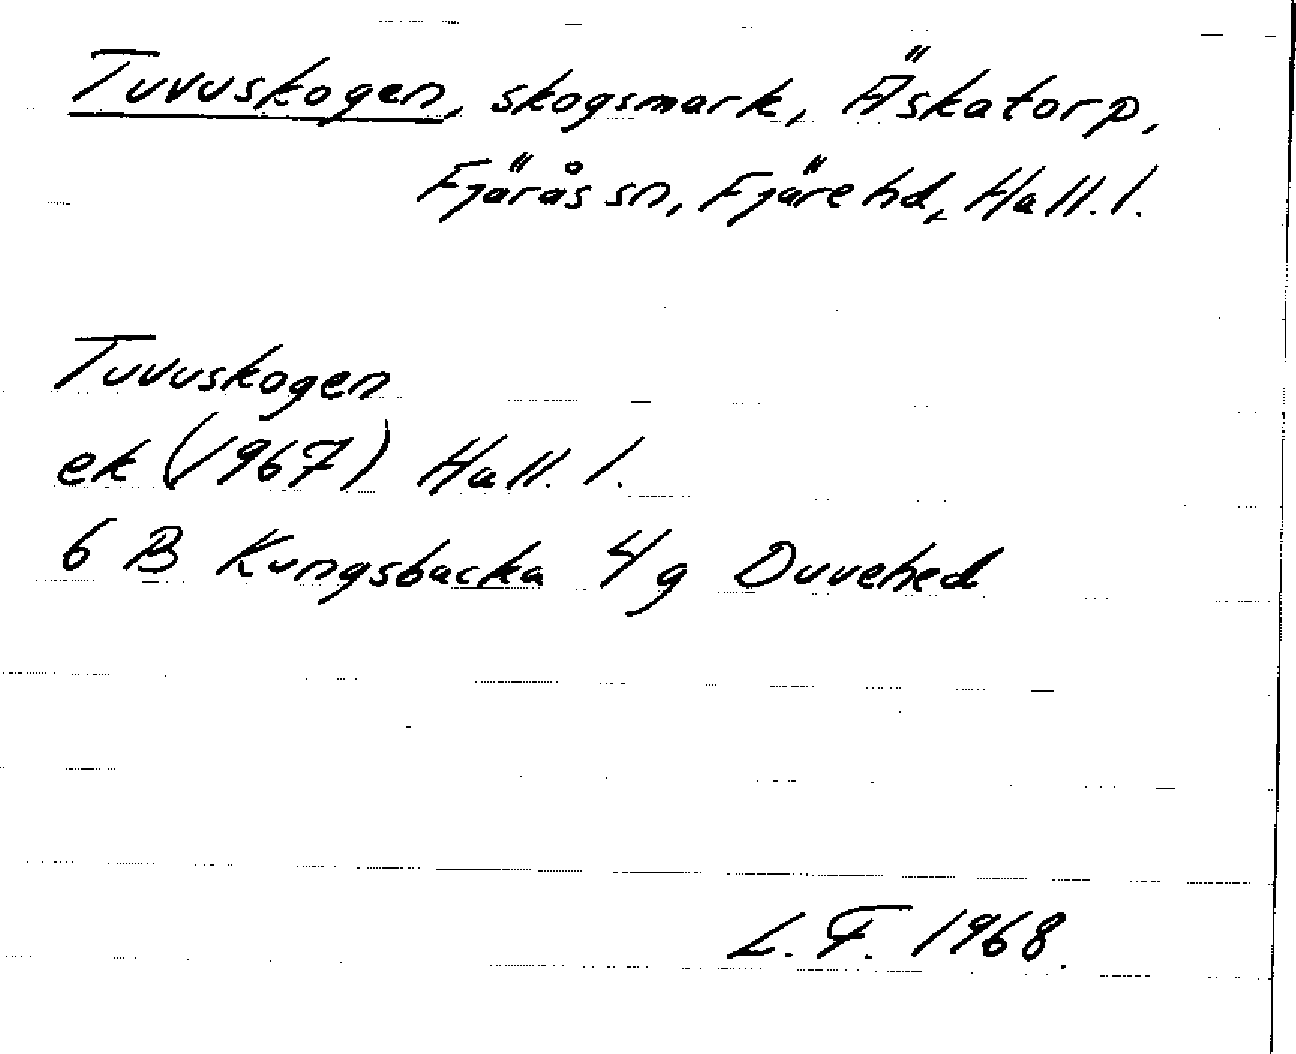 Tuvuskogen, skogsmark, Äskatorp,
Fjärås sn, Fjäre hd, Hall. l.
Tuvuskogen
ek (1967) Hall. l.
6 B Kungsbacka 4 g Duvehed
L. F. 1968.